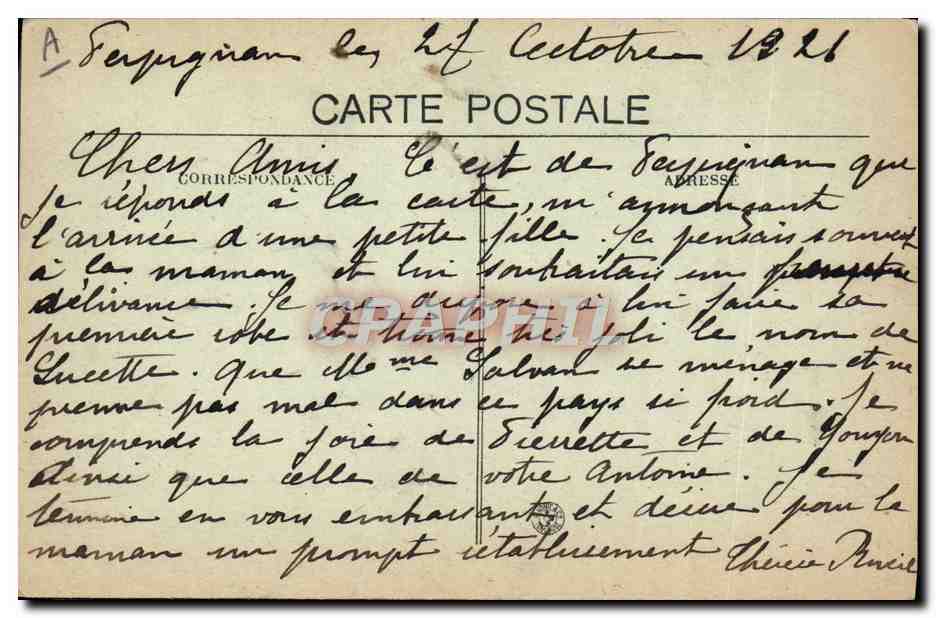 A
Perpignan le, 27 Octobre 1921
CARTE POSTALE
Chers Amis, C'est de Perpignan que
CORRESPONDANCE ADRESSE
Je réponds à la carte, m'annonçant
l'arrivée d'une petite fille. Je pensais souvent
à la maman et lui souhaitais une prompte
délivrance. Je me dispose à lui faire sa
première robe et trouve très joli le nom de
Lucette. Que Mme Salvan se ménage et ne
prenne pas mal dans ce pays si froid. Je
comprends la joie de Pierrette et de
Ainsi que celle de votre Antoine. Je
termine en vous embrassant et désire pour la
maman un prompt rétablissement Thérèse
CPAPHIL